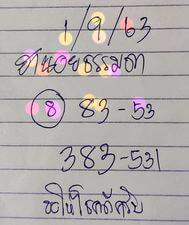 1/9/63
ฮานอยธรรมดา
8 83-53
383-531
ขอให้โชคดีครับ